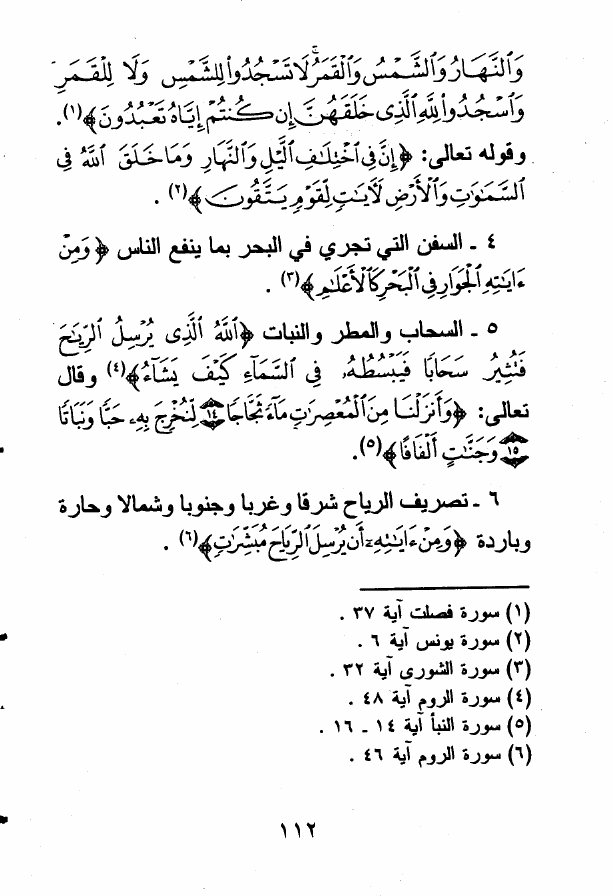 وَٱلنَّهَارُ وَٱلشَّمْسُ وَٱلْقَمَرُ ۚ لَا تَسْجُدُوا۟ لِلشَّمْسِ وَلَا لِلْقَمَرِ
وَٱسْجُدُوا۟ لِلَّهِ ٱلَّذِى خَلَقَهُنَّ إِن كُنتُمْ إِيَّاهُ تَعْبُدُونَ﴾(١).
وقوله تعالى: ﴿إِنَّ فِى ٱخْتِلَٰفِ ٱلَّيْلِ وَٱلنَّهَارِ وَمَا خَلَقَ ٱللَّهُ فِى
ٱلسَّمَٰوَٰتِ وَٱلْأَرْضِ لَءَايَٰتٍ لِّقَوْمٍ يَتَّقُونَ﴾(٢) .
٤ ـ السفن التي تجري في البحر بما ينفع الناس ﴿وَمِنْ
ءَايَٰتِهِ ٱلْجَوَارِ فِى ٱلْبَحْرِ كَٱلْأَعْلَٰمِ﴾(٣) .
٥ ـ السحاب والمطر والنبات ﴿ٱللَّهُ ٱلَّذِى يُرْسِلُ ٱلرِّيَٰحَ
فَتُثِيرُ سَحَابًا فَيَبْسُطُهُۥ فِى ٱلسَّمَآءِ كَيْفَ يَشَآءُ﴾(٤) وقال
تعالى: ﴿وَأَنزَلْنَا مِنَ ٱلْمُعْصِرَٰتِ مَآءً ثَجَّاجًا ١٤ لِّنُخْرِجَ بِهِۦ حَبًّا وَنَبَاتًا
١٥ وَجَنَّٰتٍ أَلْفَافًا﴾(٥).
٦ ـ تصريف الرياح شرقا وغربا وجنوبا وشمالا وحارة
وباردة ﴿وَمِنْ ءَايَٰتِهِۦٓ أَن يُرْسِلَ ٱلرِّيَاحَ مُبَشِّرَٰتٍ﴾(٦) .
(١) سورة فصلت آية ٣٧ .
(٢) سورة يونس آية ٦ .
(٣) سورة الشورى آية ٣٢ .
(٤) سورة الروم آية ٤٨ .
(٥) سورة النبأ آية ١٤ ـ ١٦ .
(٦) سورة الروم آية ٤٦ .
١١٢